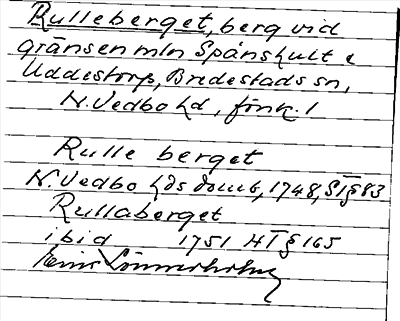 Rulleberget, berg vid
gränsen mln Spånshult o
Uddestorp, Bredestads sn,
N. Vedbo hd, Jönk. l
Rulle berget
N. Vedbo hds domb, 1748, ST § 83
Rullaberget
ibid 1751 HT § 165